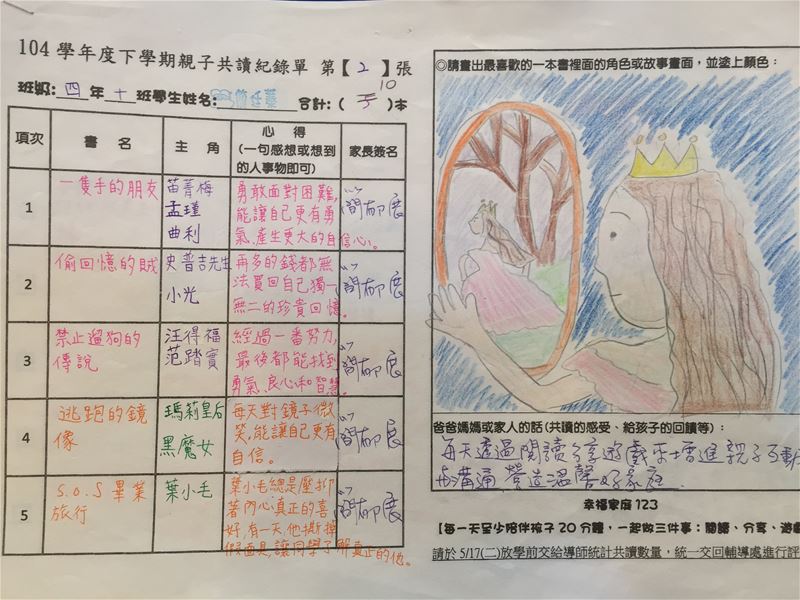 104 學年度下學期親子共讀紀錄單 第【2】張
班級:四年十班學生姓名:
合計:(10)本
項次 書名 主角 心得 家長簽名
(一句感想或想到
的人事物即可)
1 一隻手的朋友 苗菁梅 孟瑾 曲利
勇敢面對困難,
能讓自己更有勇
氣,產生更大的自信心。
2 偷回憶的賊 史普吉先生 小光
再多的錢都無
法買回自己獨一
無二的珍貴回憶。
3 禁止遛狗的
傳說
汪得福
范踏實
經過一番努力,
最後都能找到
勇氣、良心和智慧。
4 逃跑的鏡
像
瑪莉皇后
黑魔女
每天對鏡子微
笑,能讓自己更有
自信。
5 S.O.S 畢業
旅行
葉小毛
葉小毛總是壓抑
著內心真正的喜
好,有一天他撕掉
假面具,讓同學了解真正的他。
◎請畫出最喜歡的一本書裡面的角色或故事畫面,並塗上顏色:
爸爸媽媽或家人的話(共讀的感受、給孩子的回饋等):
每天透過閱讀分享遊戲來增進親子互動
與溝通 營造溫馨好家庭
幸福家庭 123
【每一天至少陪伴孩子 20 分鐘,一起做三件事:閱讀、分享、遊戲
請於 5/17(二)放學前交給導師統計共讀數量,統一交回輔導處進行評